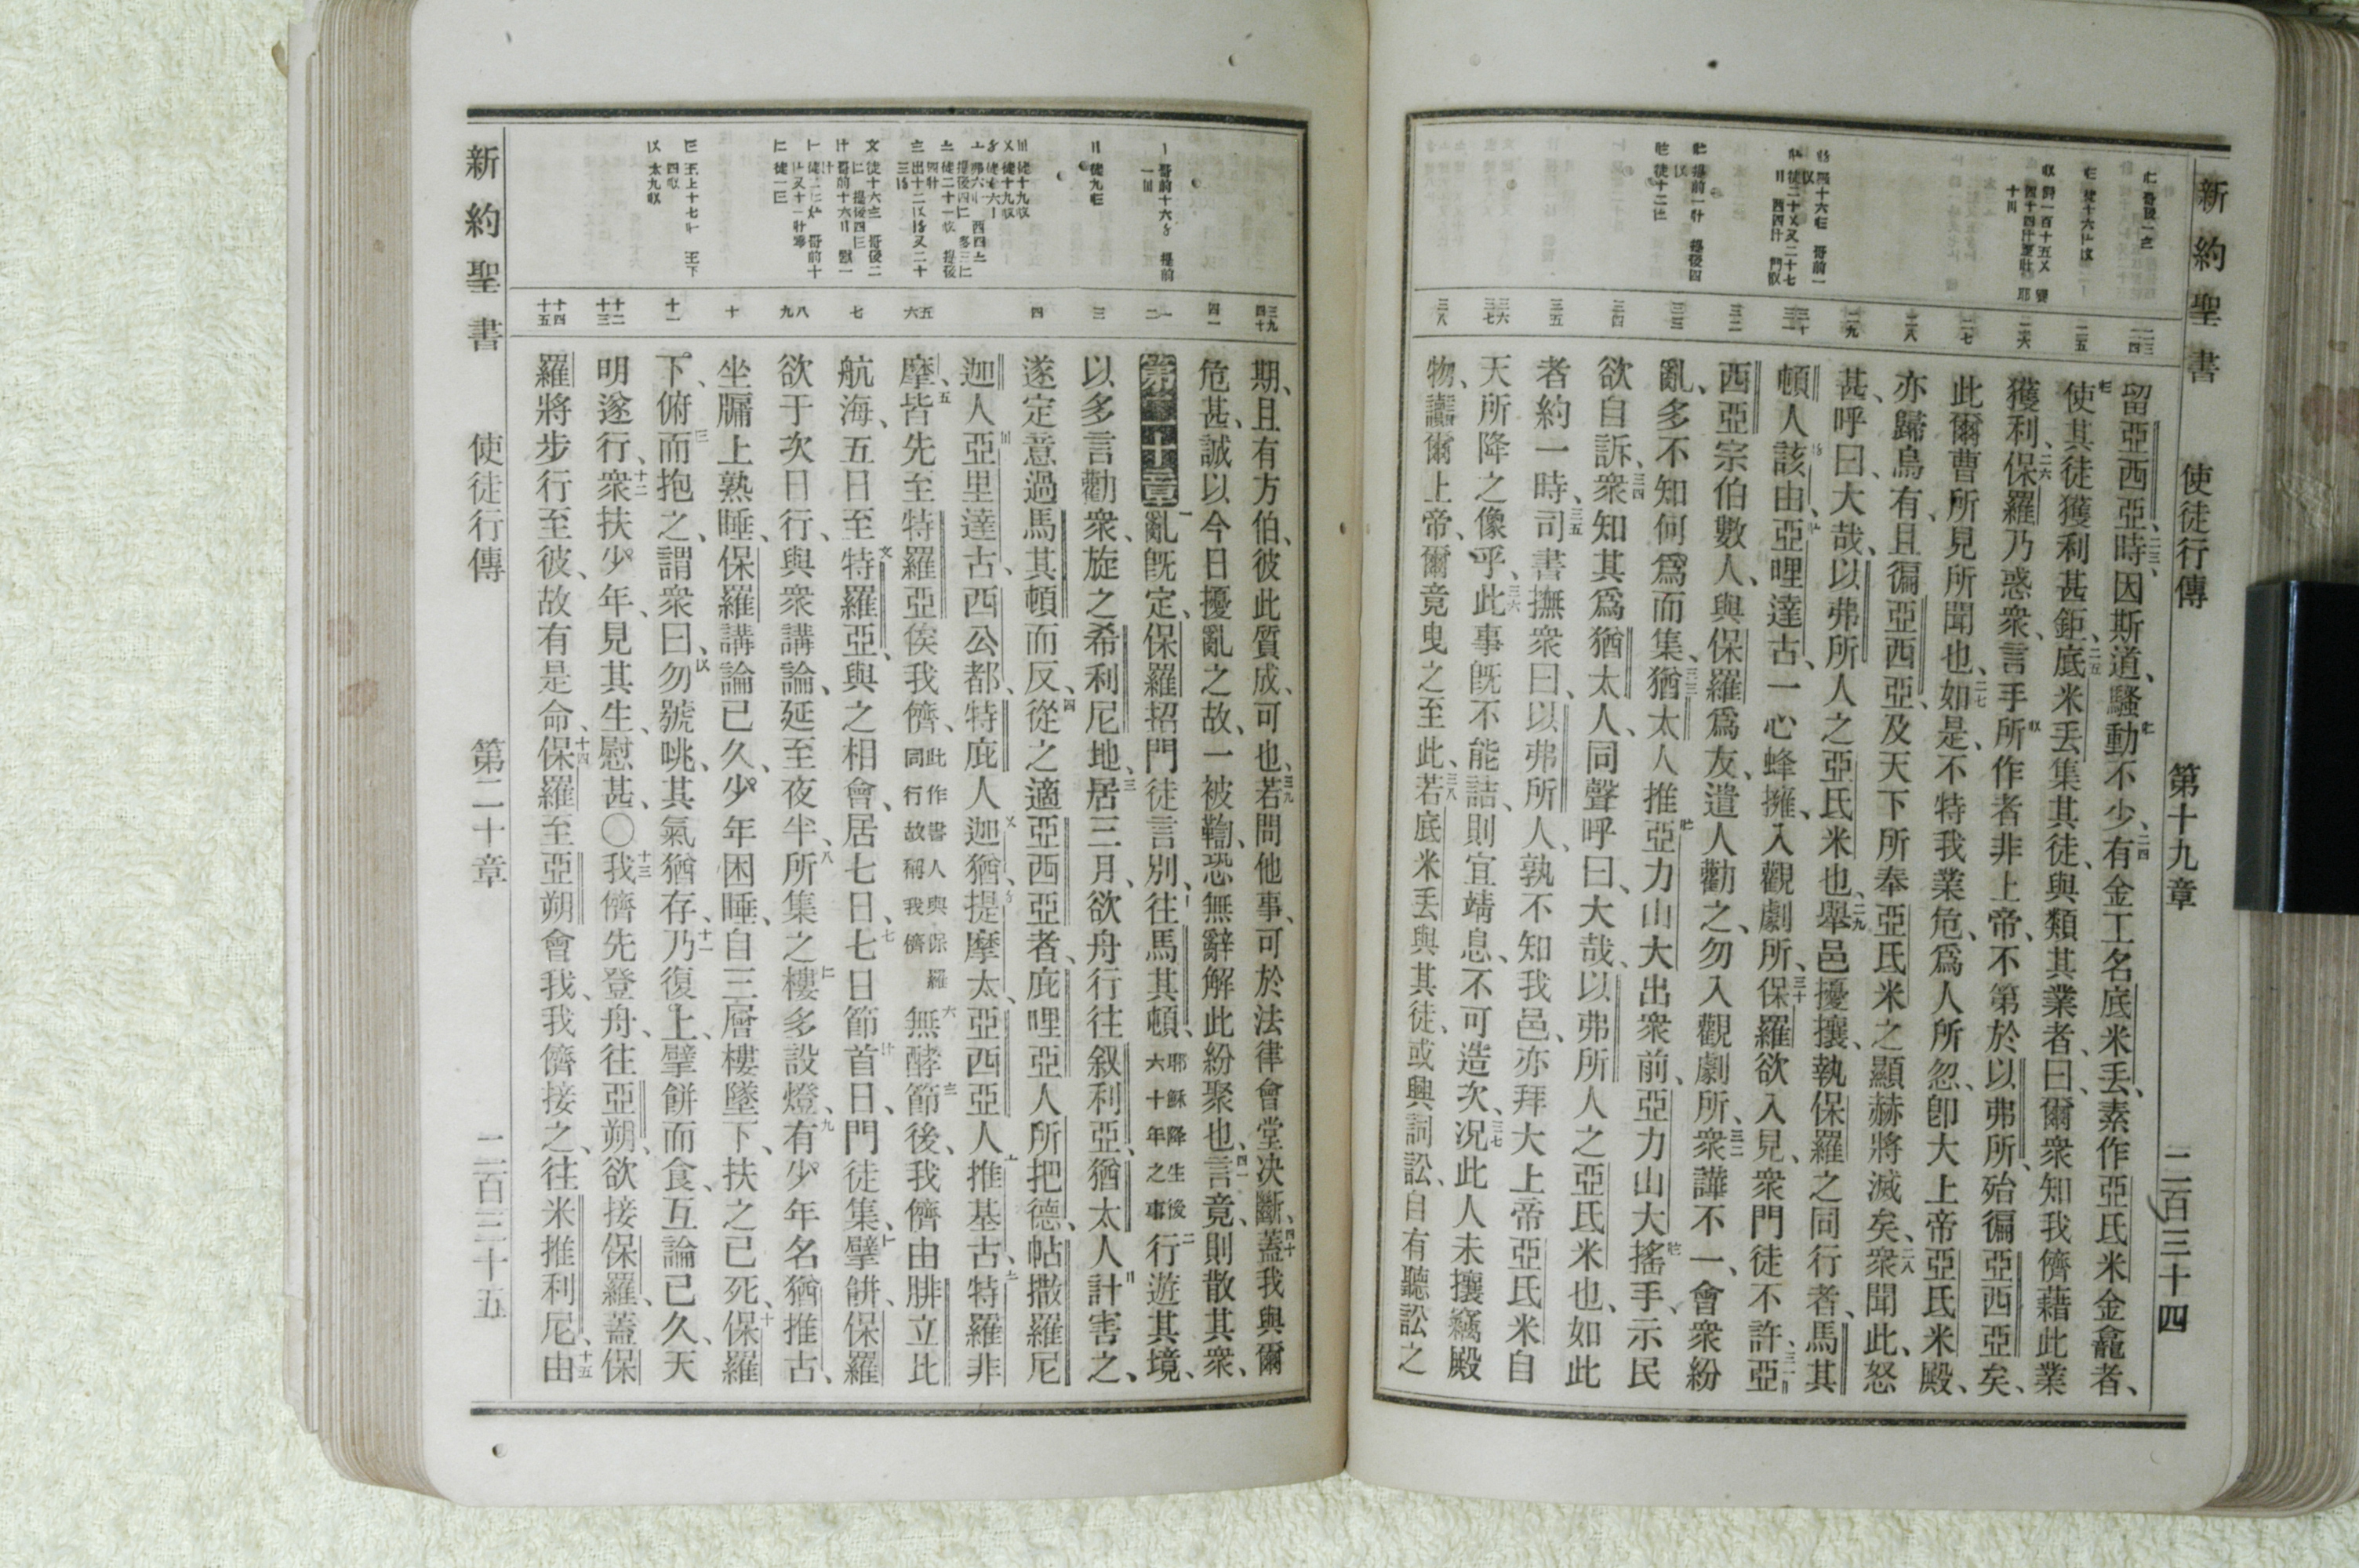 新約聖書 使徒行傳 第十九章 二百三十四
二三 二四
二五
二六
二七
二八
二九
三十 三一
三二
三三
三四
三五
三六 三七
三八
留亞西亞、二三時因斯道、騷動不少、二四有金工名底米丢、素作亞氏米金龕者、
使其徒獲利甚鉅、二五底米丢集其徒、與類其業者、曰、爾衆知我儕藉此業
獲利、二六保羅乃惑衆、言手所作者非上帝、不第於以弗所、殆徧亞西亞矣、
此爾曹所見所聞也、二七如是、不特我業危、爲人所忽、卽大上帝亞氏米殿、
亦歸烏有、且徧亞西亞、及天下所奉亞氏米之顯赫將滅矣、二八衆聞此、怒
甚、呼曰、大哉、以弗所人之亞氏米也、二九舉邑擾攘、執保羅之同行者、馬其
頓人該由、亞哩達古、一心蜂擁、入觀劇所、三十保羅欲入見、衆門徒不許、三一亞
西亞宗伯數人、與保羅爲友、遣人勸之、勿入觀劇所、三二衆譁不一、會衆紛
亂、多不知何爲而集、三三猶太人推亞力山大出衆前、亞力山大搖手、示民
欲自訴、三四衆知其爲猶太人、同聲呼曰、大哉、以弗所人之亞氏米也、如此
者約一時、三五司書撫衆曰、以弗所人、孰不知我邑、亦拜大上帝亞氏米自
天所降之像乎、三六此事旣不能詰、則宜靖息、不可造次、三七况此人未攘竊殿
物、讟爾上帝、爾竟曳之至此、三八若底米丢與其徒、或興詞訟、自有聽訟之
三九 四十
四一
一 二
三
四
五 六
七
八 九
十
十一
十二 十三
十四 十五
期、且有方伯、彼此質成、可也、三九若問他事、可於法律會堂决斷、四十蓋我與爾
危甚、誠以今日擾亂之故、一被鞫、恐無辭解此紛聚也、四一言竟、則散其衆、
第二十章 一亂旣定、保羅招門徒言別、往馬其頓、耶穌降生後六十年之事二行遊其境、
以多言勸衆、旋之希利尼地、三居三月、欲舟行往叙利亞、猶太人計害之、
遂定意過馬其頓而反、四從之適亞西亞者、庇哩亞人所把德、帖撒羅尼
迦人亞里達古、西公都、特庇人迦猶、提摩太、亞西亞人推基古、特羅非
摩、五皆先至特羅亞俟我儕、此作書人與保羅同行故稱我儕六無酵節後、我儕由腓立比
航海、五日至特羅亞、與之相會、居七日、七七日節首日、門徒集、擘餠、保羅
欲于次日行、與衆講論、延至夜半、八所集之樓多設燈、九有少年名猶推古、
坐牖上熟睡、保羅講論已久、少年困睡、自三層樓墜下、扶之已死、十保羅
下、俯而抱之、謂衆曰、勿號咷、其氣猶存、十一乃復上、擘餠而食、互論已久、天
明遂行、十二衆扶少年、見其生、慰甚、○十三我儕先登舟、往亞朔、欲接保羅、蓋保
羅將步行至彼、故有是命、十四保羅至亞朔會我、我儕接之、往米推利尼、十五由
新約聖書 使徒行傳 第二十章 二百三十五